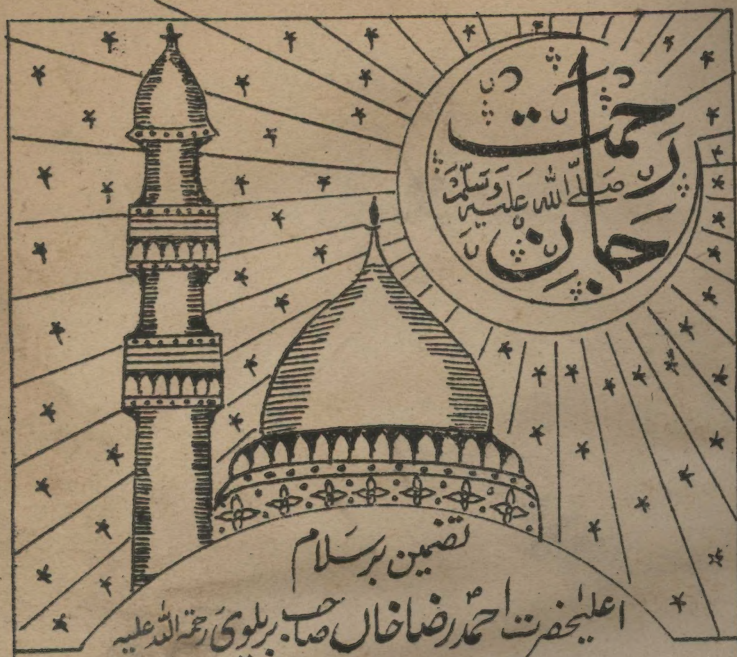 جان رحمت
صلی اللہ علیہ وسلم
تضمین بر سلام
اعلیٰحضرت احمد رضا خاں صاحب بریلوی رحمۃ اللہ علیہ